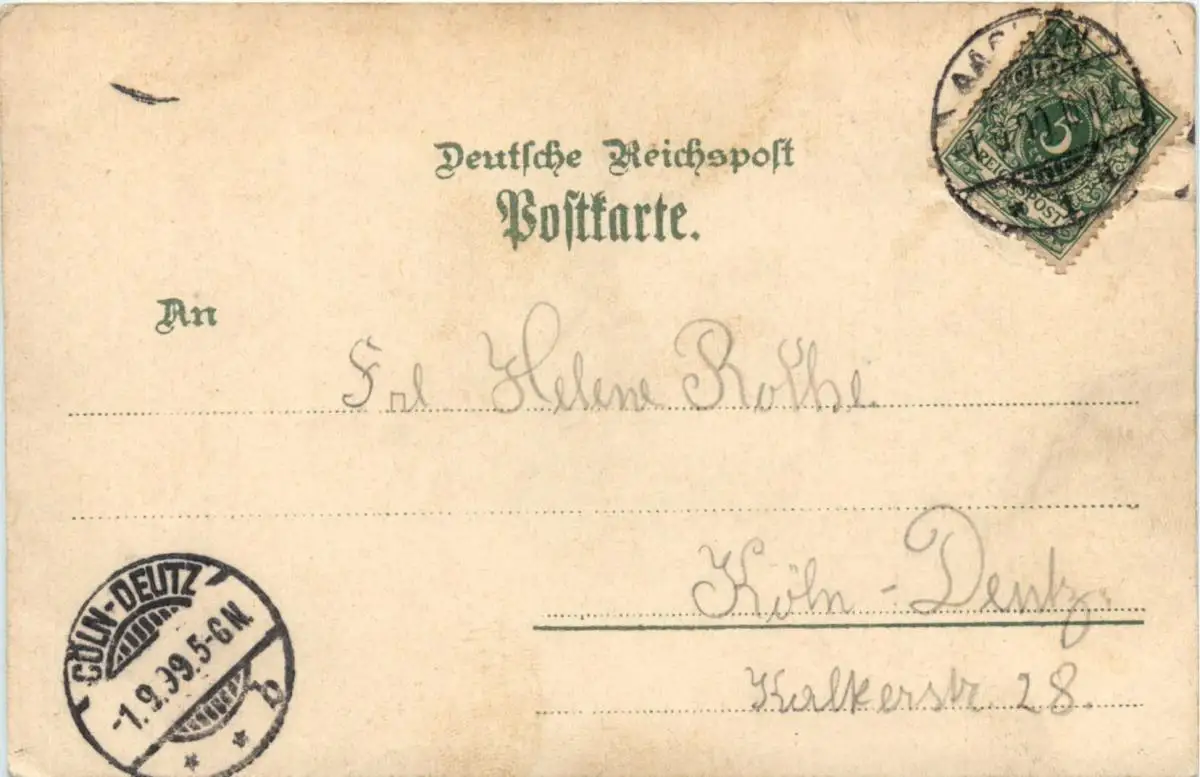 Deutsche Reichspost
Postkarte.
An
Frl Helene Rothe
Köln - Deutz.
Kalkerstr. 28.
CÖLN-DEUTZ
-1.9.99.5-6N.
b
AACHEN
1
5
REICHSPOST